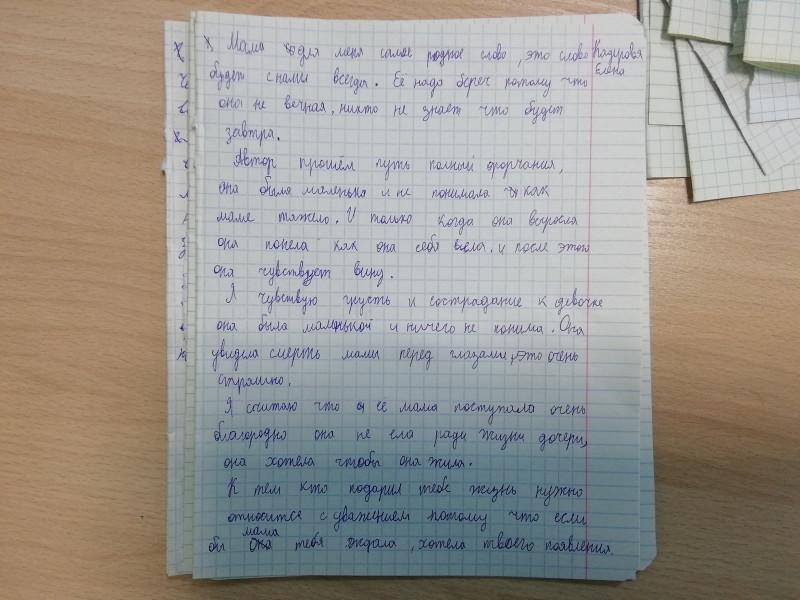 Мама для меня самое родное слово, это слово
Кадырова
Елена
будет с нами всегда. Её надо береч потому что
она не вечная, никто не знает что будет
завтра.
Автор прошём путь полный
она была маленька и не понимала как
маме тяжело. И только когда она выросла
она понела как она себя вела. и после этого
она чувствует вину.
Я чувствую грусть и сострадание к девочке
она была маленькой и ничего не понима. Она
увидела смерть мамы перед глазами, это очень
страшно.
Я считаю что её мама поступала очень
благородно она не ела ради жизни дочери,
она хотела чтобы она жила.
К тем кто подарил тебе жизнь нужно
относится с уважением потому что если
бы мама тебя не ждала, хотела твоего появления.